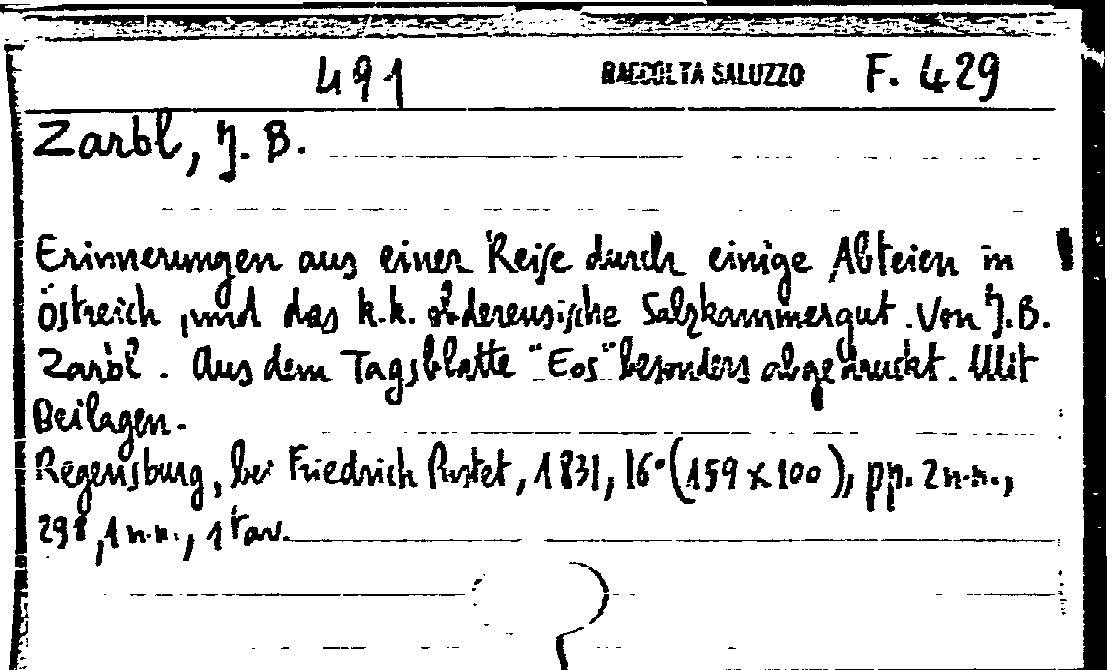 491 RACCOLTA SALUZZO F. 429
Zarbl, J. B.
Erinnerungen aus einer Reise durch einige Abteien in
Östreich, und das k.k. Salzkammergut. Von J.B.
Zarbl. Aus dem Tagsblatte "Eos" besonders abgedruckt. Mit
Beilagen.
Regensburg, bei Friedrich Pustet, 1831, 16° (159 x 100), pp. 2 n.n.,
298, 1 n.n., 1 tav.